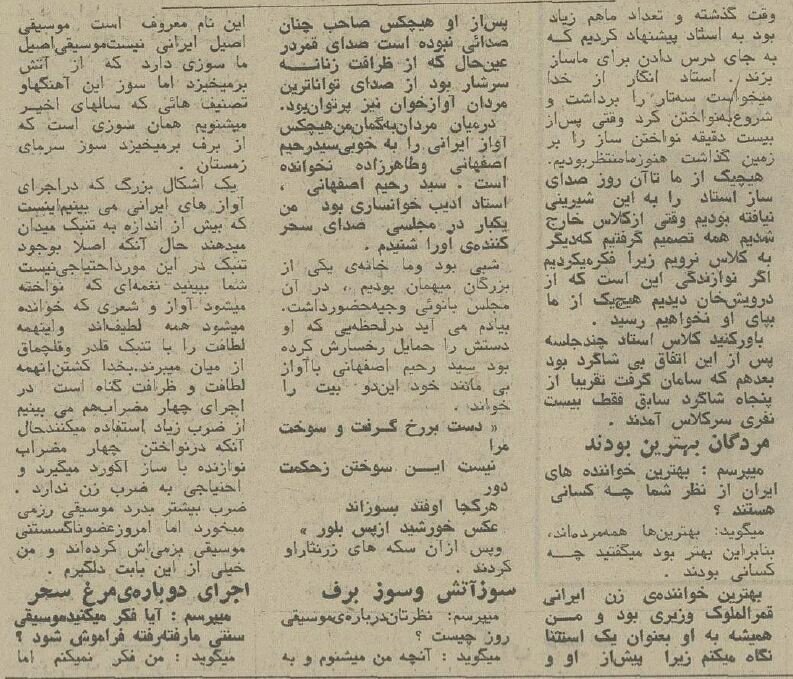 وقت گذشته و تعداد ماهم زیاد
بود به استاد پیشنهاد کردیم که
به جای درس دادن برای ماساز
بزند . استاد انگار از خدا
میخواست سه‌تار را برداشت و
شروع‌به‌نواختن کرد وقتی پس‌از
بیست دقیقه نواختن ساز را بر
زمین گذاشت هنوزمامنتظربودیم.
هیچیک از ما تاآن روز صدای
ساز استاد را به این شیرینی
نیافته بودیم وقتی ازکلاس خارج
شدیم همه تصمیم گرفتیم که‌دیگر
به کلاس نرویم زیرا فکرمیکردیم
اگر نوازندگی این است که از
درویش‌خان دیدیم هیچ‌یک از ما
بپای او نخواهیم رسید .
باورکنید کلاس استاد چندجلسه
پس از این اتفاق بی شاگرد بود
بعدهم که سامان گرفت تقریبا از
پنجاه شاگرد سابق فقط بیست
نفری سرکلاس آمدند .
مردگان بهترین بودند
میپرسم : بهترین خواننده های
ایران از نظر شما چه کسانی
هستند ؟
میگوید: بهترین‌ها همه‌مرده‌اند،
بنابراین بهتر بود میگفتید چه
کسانی بودند .
بهترین خواننده‌ی زن ایرانی
قمرالملوک وزیری بود و من
همیشه به او بعنوان یک استثنا
نگاه میکنم زیرا پیش‌از او و
پس‌از او هیچکس صاحب چنان
صدائی نبوده است صدای قمردر
عین‌حال که از ظرافت زنانه
سرشار بود از صدای تواناترین
مردان آوازخوان نیز پرتوان‌بود.
درمیان مردان‌به‌گمان‌من‌هیچکس
آواز ایرانی را به خوبی‌سیدرحیم
اصفهانی وطاهرزاده نخوانده
است . سید رحیم اصفهانی ،
استاد ادیب خوانساری بود من
یکبار در مجلسی صدای سحر
کننده‌ی اورا شنیدم .
شبی بود وما خانه‌ی یکی از
بزرگان میهمان بودیم ، در آن
مجلس بانوئی وجیهه‌حضورداشت.
بیادم می آید درلحظه‌یی که او
دستش را حمایل رخسارش کرده
بود سید رحیم اصفهانی باآواز
بی مانند خود این‌دو بیت را
خواند .
« دست بررخ گرفت و سوخت
مرا
نیست این سوختن زحکمت
دور
هرکجا اوفتد بسوزاند
عکس خورشید ازپس بلور »
وپس ازآن سکه های زرنثاراو
کردند .
سوزآتش وسوز برف
میپرسم: نظرتان‌درباره‌ی‌موسیقی
روز چیست ؟
میگوید : آنچه من میشنوم و به
این نام معروف است موسیقی
اصیل ایرانی نیست‌موسیقی‌اصیل
ما سوزی دارد که از آتش
برمیخیزد اما سوز این آهنگهاو
تصنیف هائی که سالهای اخیر
میشنویم همان سوزی است که
از برف برمیخیزد سوز سرمای
زمستان .
یک اشکال بزرگ که دراجرای
آواز های ایرانی می بینیم‌اینست
که بیش از اندازه به تنبک میدان
میدهند حال آنکه اصلا بوجود
تنبک در این مورداحتیاجی‌نیست
شما ببینید نغمه‌ای که نواخته
میشود آواز و شعری که خوانده
میشود همه لطیف‌اند واینهمه
لطافت را با تنبک قلدر وقلچماق
از میان میبرند.بخدا کشتن‌اینهمه
لطافت و ظرافت گناه است در
اجرای چهار مضراب‌هم می بینیم
از ضرب زیاد استفاده میکنندحال
آنکه درنواختن چهار مضراب
نوازنده با ساز آکورد میگیرد و
احتیاجی به ضرب زن ندارد .
ضرب بیشتر بدرد موسیقی رزمی
میخورد اما امروز
موسیقی بزمی‌اش کرده‌اند و من
خیلی از این بابت دلگیرم .
اجرای دوباره‌ی‌مرغ سحر
میپرسم : آیا فکر میکنیدموسیقی
سنتی مارفته‌رفته فراموش شود ؟
میگوید : من فکر نمیکنم اما